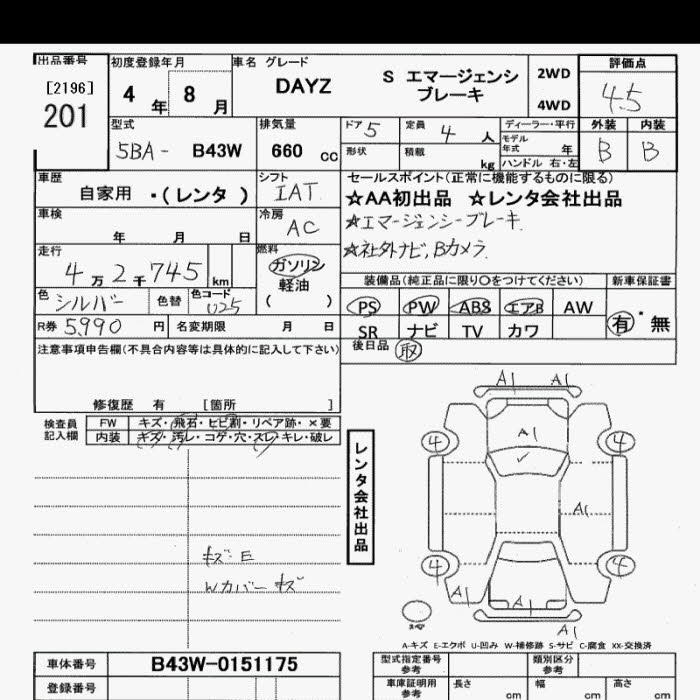 出品番号 初度登録年月 車名 グレード 評価点
[2196] 201 4 年 8 月 DAYZ S エマージェンシ ブレーキ 2WD 4WD 4.5
型式 排気量 ドア 5 定員 4 人 ディーラー・平行 外装 内装
5BA- B43W 660 cc 形状 積載 kg モデル年式 年 ハンドル 右・左 B B
車歴 シフト セールスポイント(正常に機能するものに限る)
自家用 ・(レンタ) IAT ☆AA初出品 ☆レンタ会社出品
車検 年 月 日 冷房 AC ☆エマージェンシーブレーキ
☆社外ナビ,Bカメラ
走行 4万2千745 km 燃料 ガソリン 軽油 ( )
装備品(純正品に限り○をつけてください) 新車保証書
色 シルバー 色替 色コード U25 PS PW ABS エアB AW 有・無
R券 5,990 円 名変期限 月 日 SR ナビ TV カワ
注意事項申告欄(不具合内容等は具体的に記入して下さい) 後日品 取
修復歴 有 [箇所 ]
検査員記入欄 FW キズ・飛石・ヒビ割・リペア跡・×要
内装 キズ・汚レ・コゲ・穴・スレ・キレ・破レ
レンタ会社出品
A1 A1
A1
4 4
A1
4 4
A1 A1
A1
キズ E
Wカバーキズ
A-キズ E-エクボ U-凹み W-補修跡 S-サビ C-腐食 XX-交換済
車体番号 B43W-0151175 型式指定番号 参考 類別区分 参考
登録番号 車庫証明用 参考 長さ cm 幅 cm 高さ cm